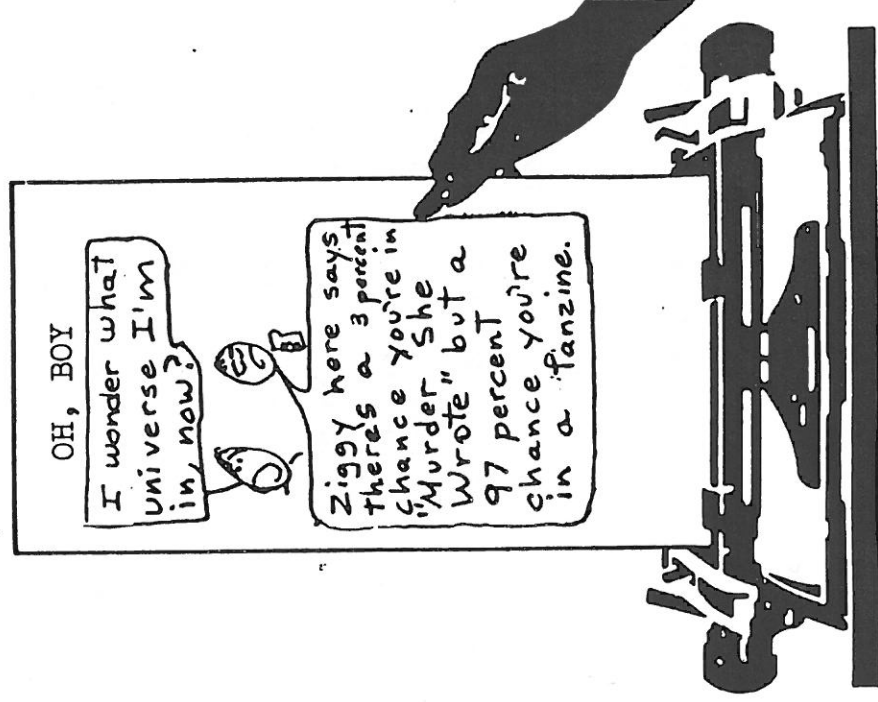 OH, BOY
I wonder what
universe I'm
in, now?
Ziggy here says
theres a 3 percent
chance you're in
"Murder She
Wrote" but a
97 percent
chance you're
in a fanzine.